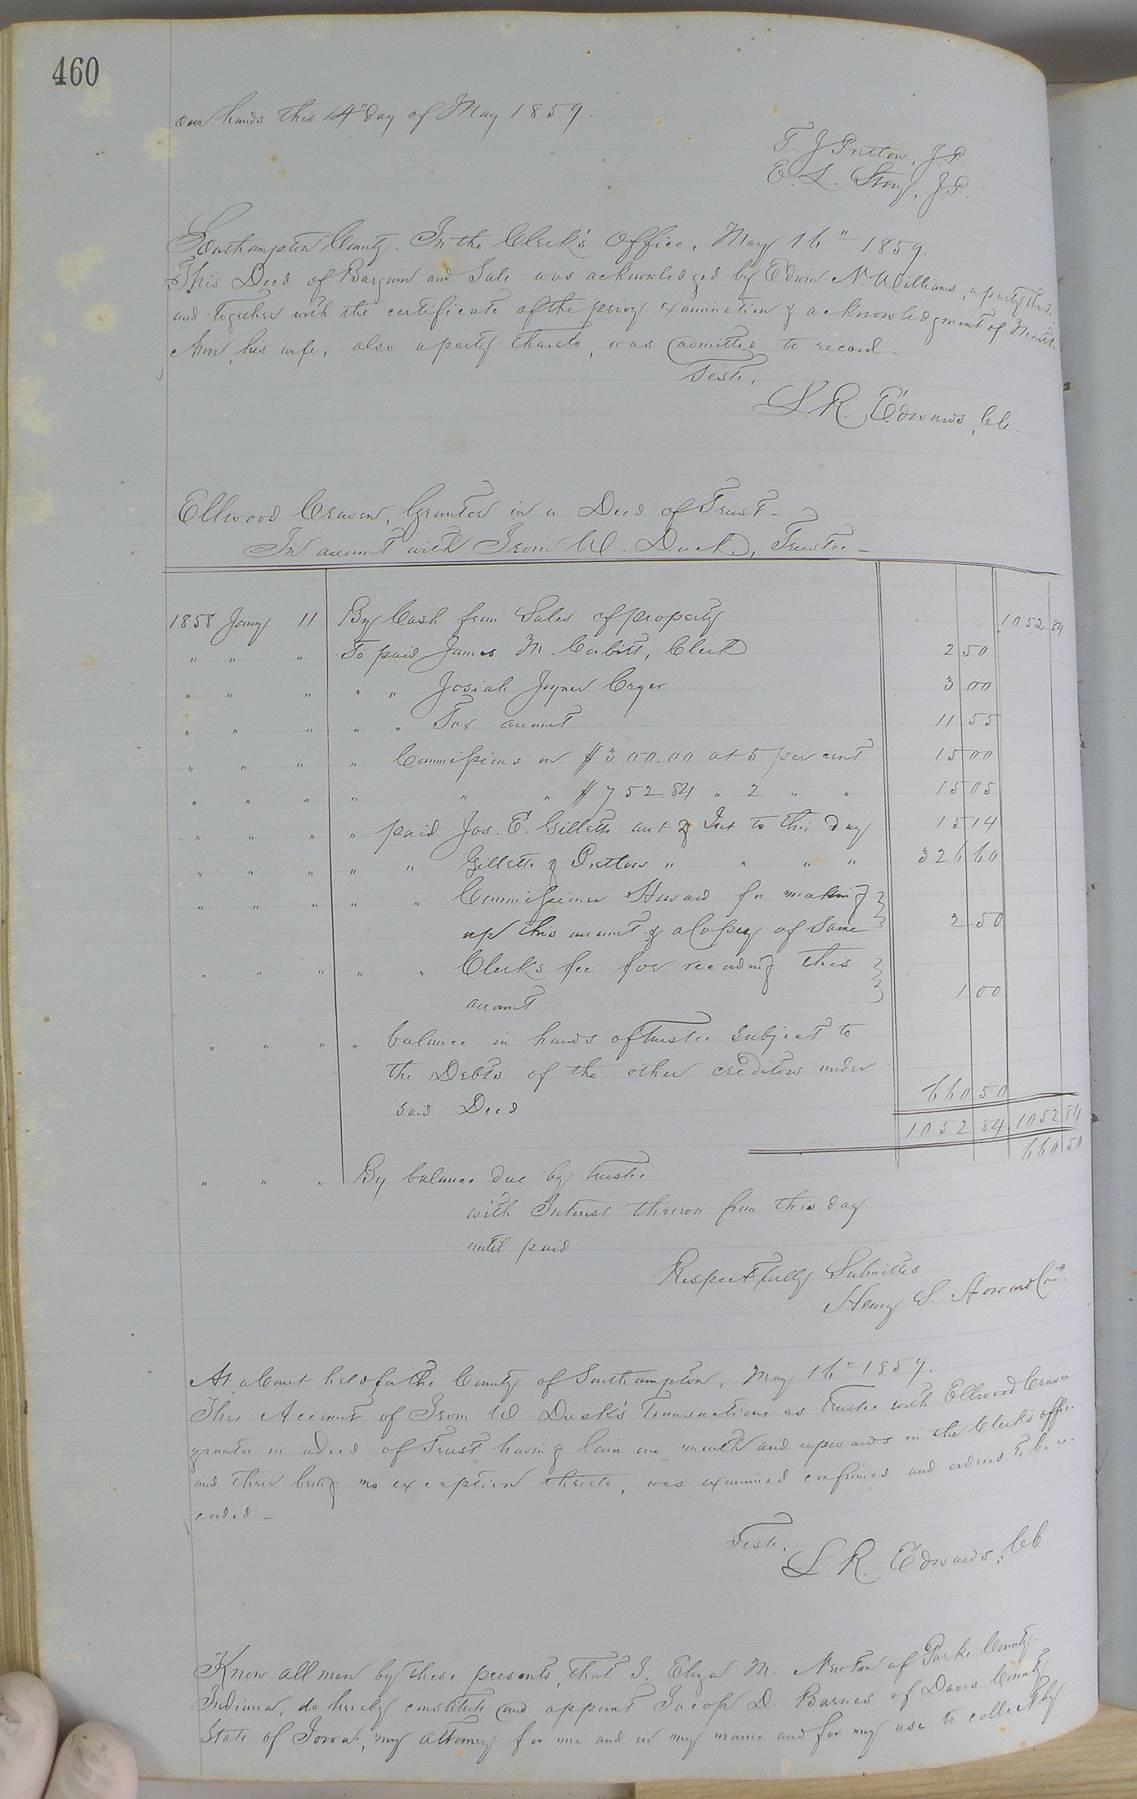 460
our hands this 14" day of May 1859.
T. J Pretlow, J.P.
E. L. Story, J.P.
Southampton County. In the Clerk's Office, May 16" 1859.
This Deed of Bargain and Sale was acknowledged by Edwin N. Williams, a party thereto
and together with the certificate of the privy examination & acknowledgment of
Ann, his wife, also a party thereto, was admitted to record.
Teste,
L. R. Edwards, Clk.
Ellwood Craven, Grantor in a Deed of Trust -
In account with Irvin W. Duck, Trustee -
1858 Jany 11 By Cash from Sales of property 1052 84
" " " To paid James M. Corbitt, Clerk 2 50
" " " " " Josiah Joyner Cryer 3 00
" " " " " Tax account 11 55
" " " " Commissions on $300.00 at 5 per cent 15 00
" " " " " " $752.84 " 2 " " 15 05
" " " " paid Jos. E. Gillette act & Int to this day 15 14
" " " " " Gillette & Pretlow " " " " 326 60
" " " " " Commissioner Howard for making
up this account & a Copy of Same 2 50
" " " " " Clerk's fee for recording this
account 1 00
" " " " balance in hands of trustee subject to
the Debts of the other creditors under
said Deed 660 50
1052 84 1052 84
660 50
" " " By balance due by trustee
with Interest thereon from this day
until paid
Respectfully Submitted
Henry S. Howard Com.
At a Court held for the County of Southampton, May 16" 1859.
This Account of Irvin W. Duck's Transactions as Trustee with Ellwood Craven
grantor in a deed of Trust having lain one month and upwards in the Clerk's office
and there being no exception thereto, was examined confirmed and ordered to be re-
corded -
Teste,
L. R. Edwards, Clk
Know all men by these presents, that I, Eliza M. Newton of Parke County
Indiana, do hereby constitute and appoint Jacob D. Barnes of Davis County
State of Iowa, my attorney for me and in my name and for my use to collect by